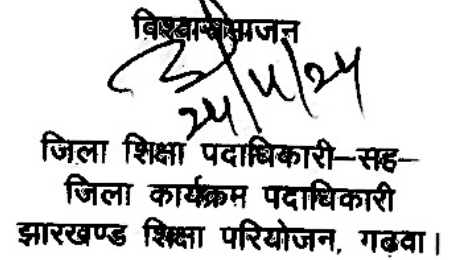 विश्वासभाजन
24/4/24
जिला शिक्षा पदाधिकारी–सह–
जिला कार्यक्रम पदाधिकारी
झारखण्ड शिक्षा परियोजन, गढवा।